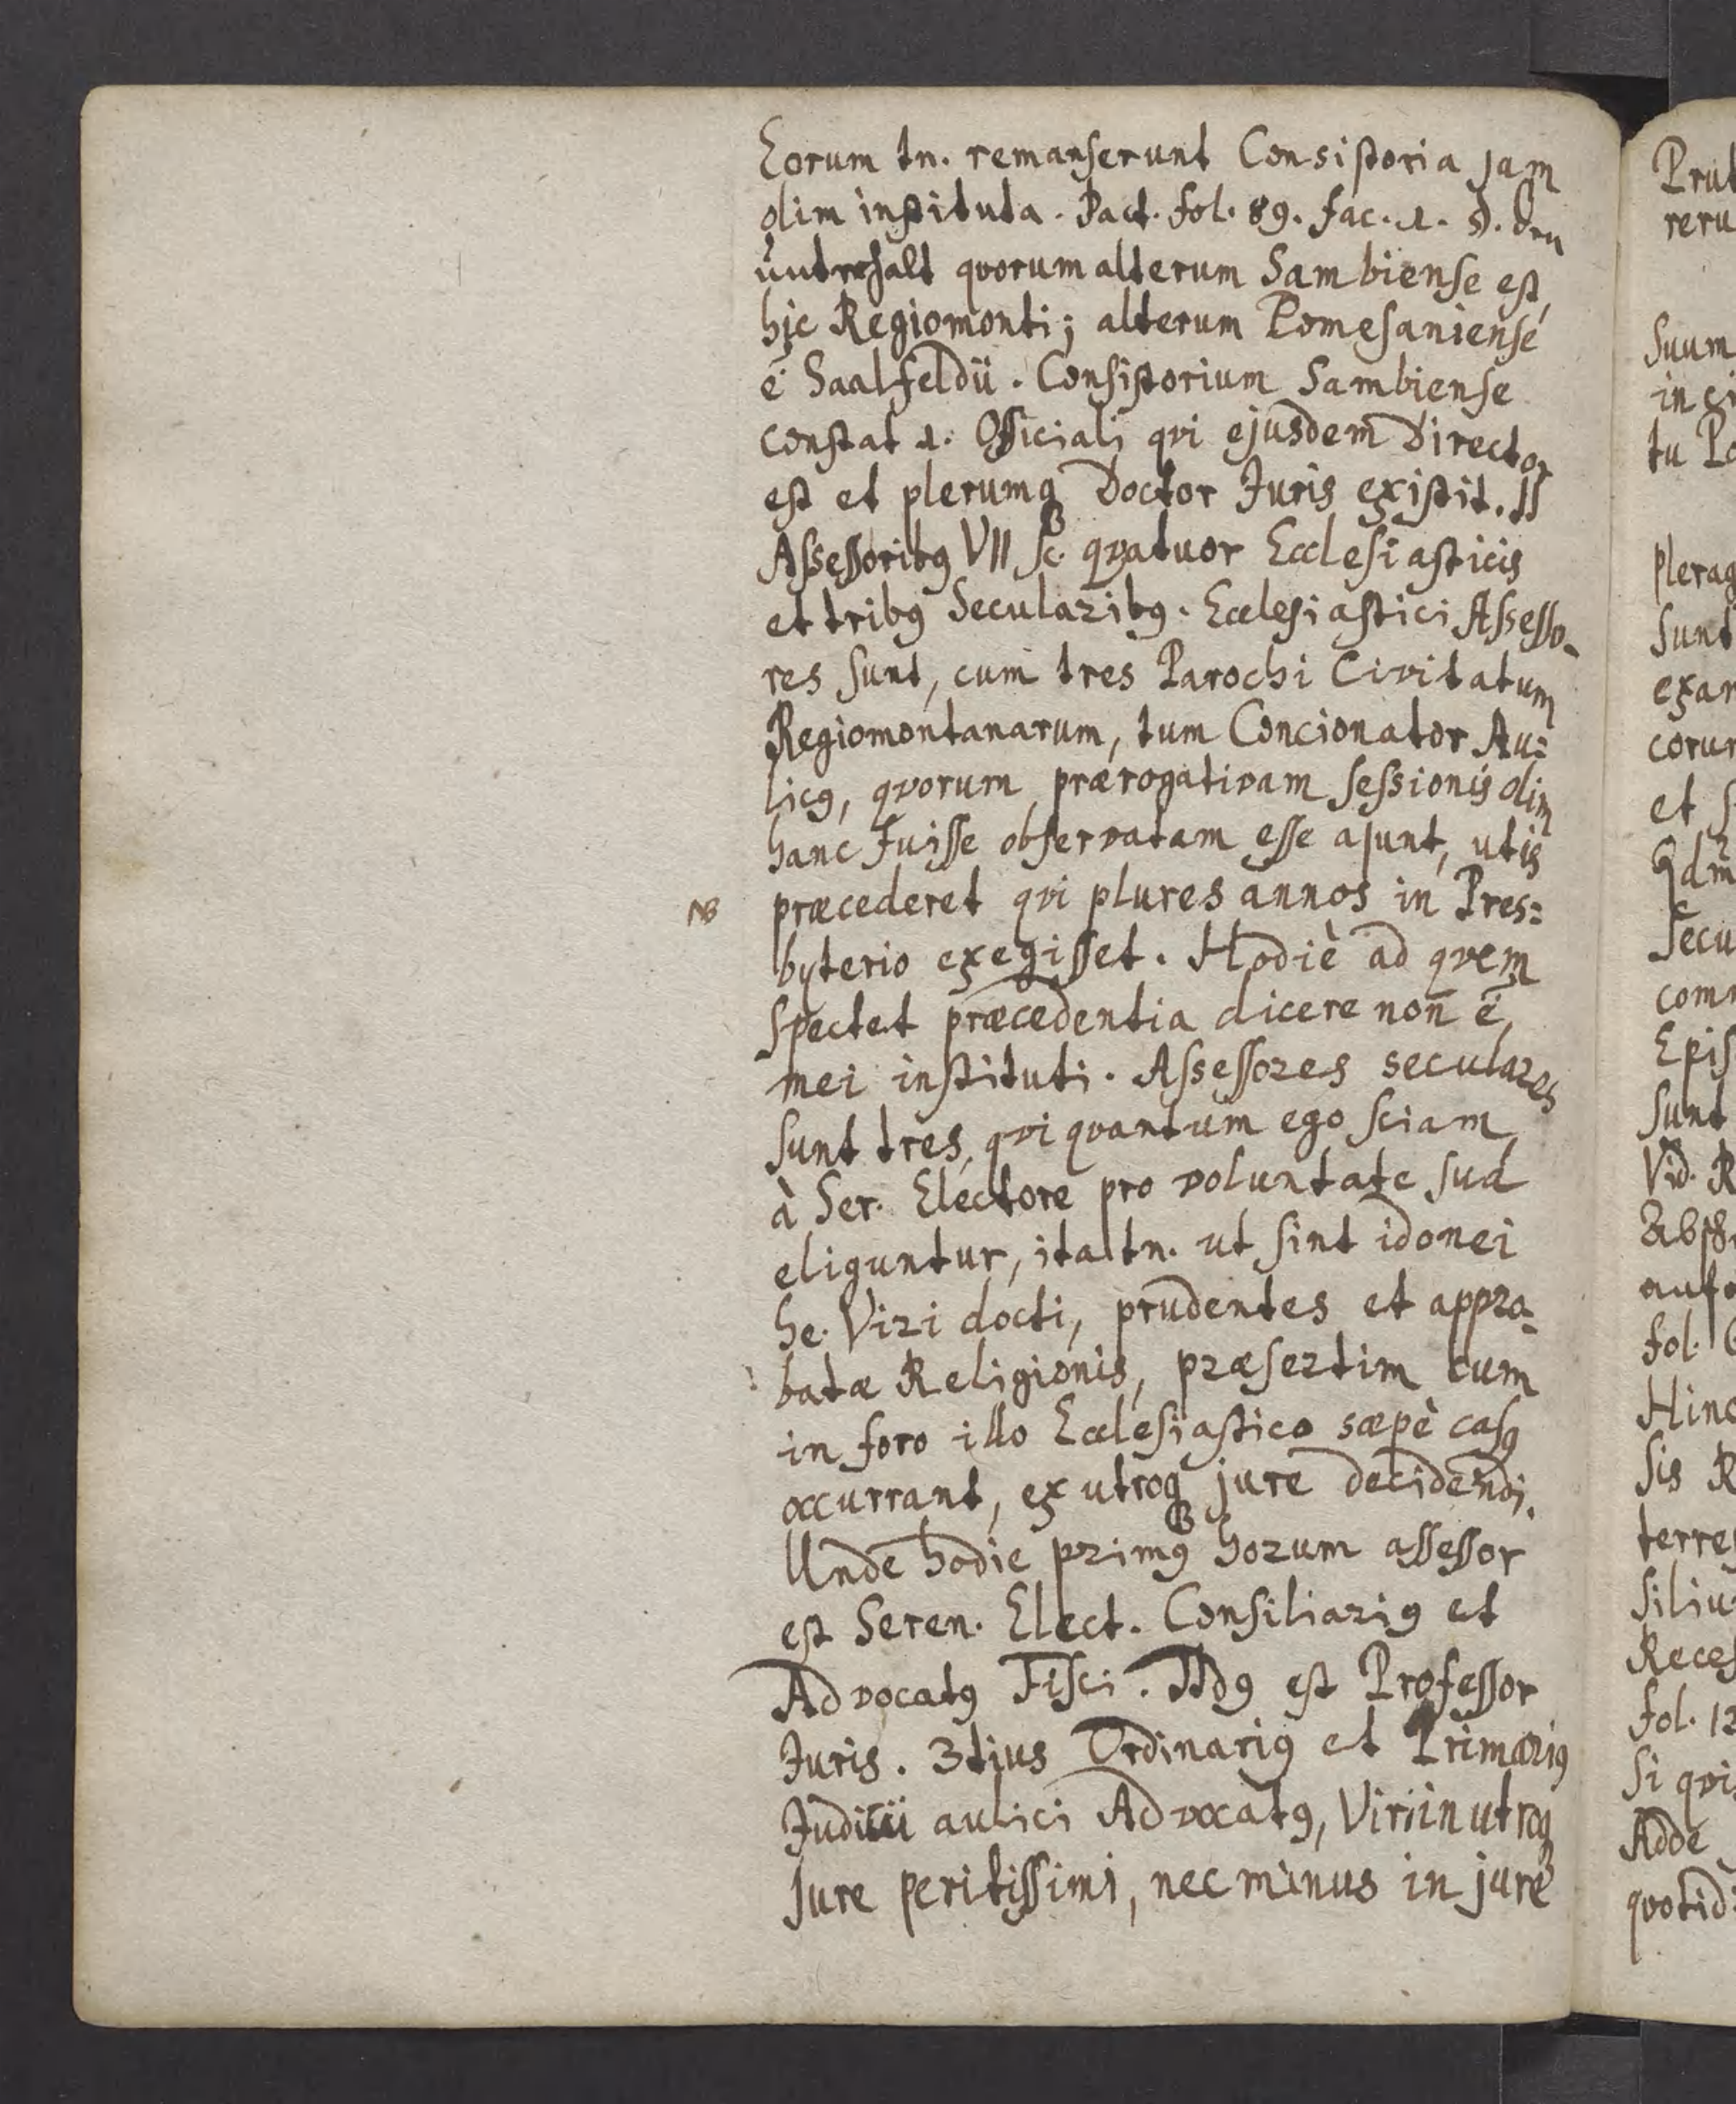 Eorum tn. remanserunt Consistoria jam
olim instituta. Pact. fol. 89. fac. 1. §. den
unterhalt qvorum alterum Sambiense est,
hic Regiomonti; alterum Pomesaniense
ē Saalfeldii. Consistorium Sambiense
constat 1. Officiali qvi ejusdem Director
est et plerumq Doctor Juris existit. II
Assessoribꝰ VII sc. qvatuor Ecclesiasticis
et tribꝰ Secularibꝰ. Ecclesiastici Assesso-
res sunt, cum tres Parochi Civitatum
Regiomontanarum, tum Concionator Au=
licꝰ, qvorum prærogativam sessionis olim
hanc fuisse observatam esse ajunt, ut is
NB præcederet qvi plures annos in Pres=
byterio exegisset. Hodiè ad qvem
spectet præcedentia dicere non ē,
mei instituti. Assessores seculares
sunt tres, qvi qvantum ego sciam,
à Ser. Electore pro voluntate sua
eliguntur, ita tn. ut sint idonei
he. Viri docti, prudentes et appro-
batæ Religionis, præsertim cum
in foro illo Ecclesiastico sæpè casꝰ
occurrant, ex utroq jure decidendi.
Unde hodie primꝰ horum assessor
est Seren. Elect. Consiliariꝰ et
Advocatꝰ Fisci. IIdꝰ est Professor
Juris. 3tius Ordinariꝰ et Primariꝰ
Juditii aulici Advocatꝰ, Viri in utroq
Jure peritissimi, nec minus in jure